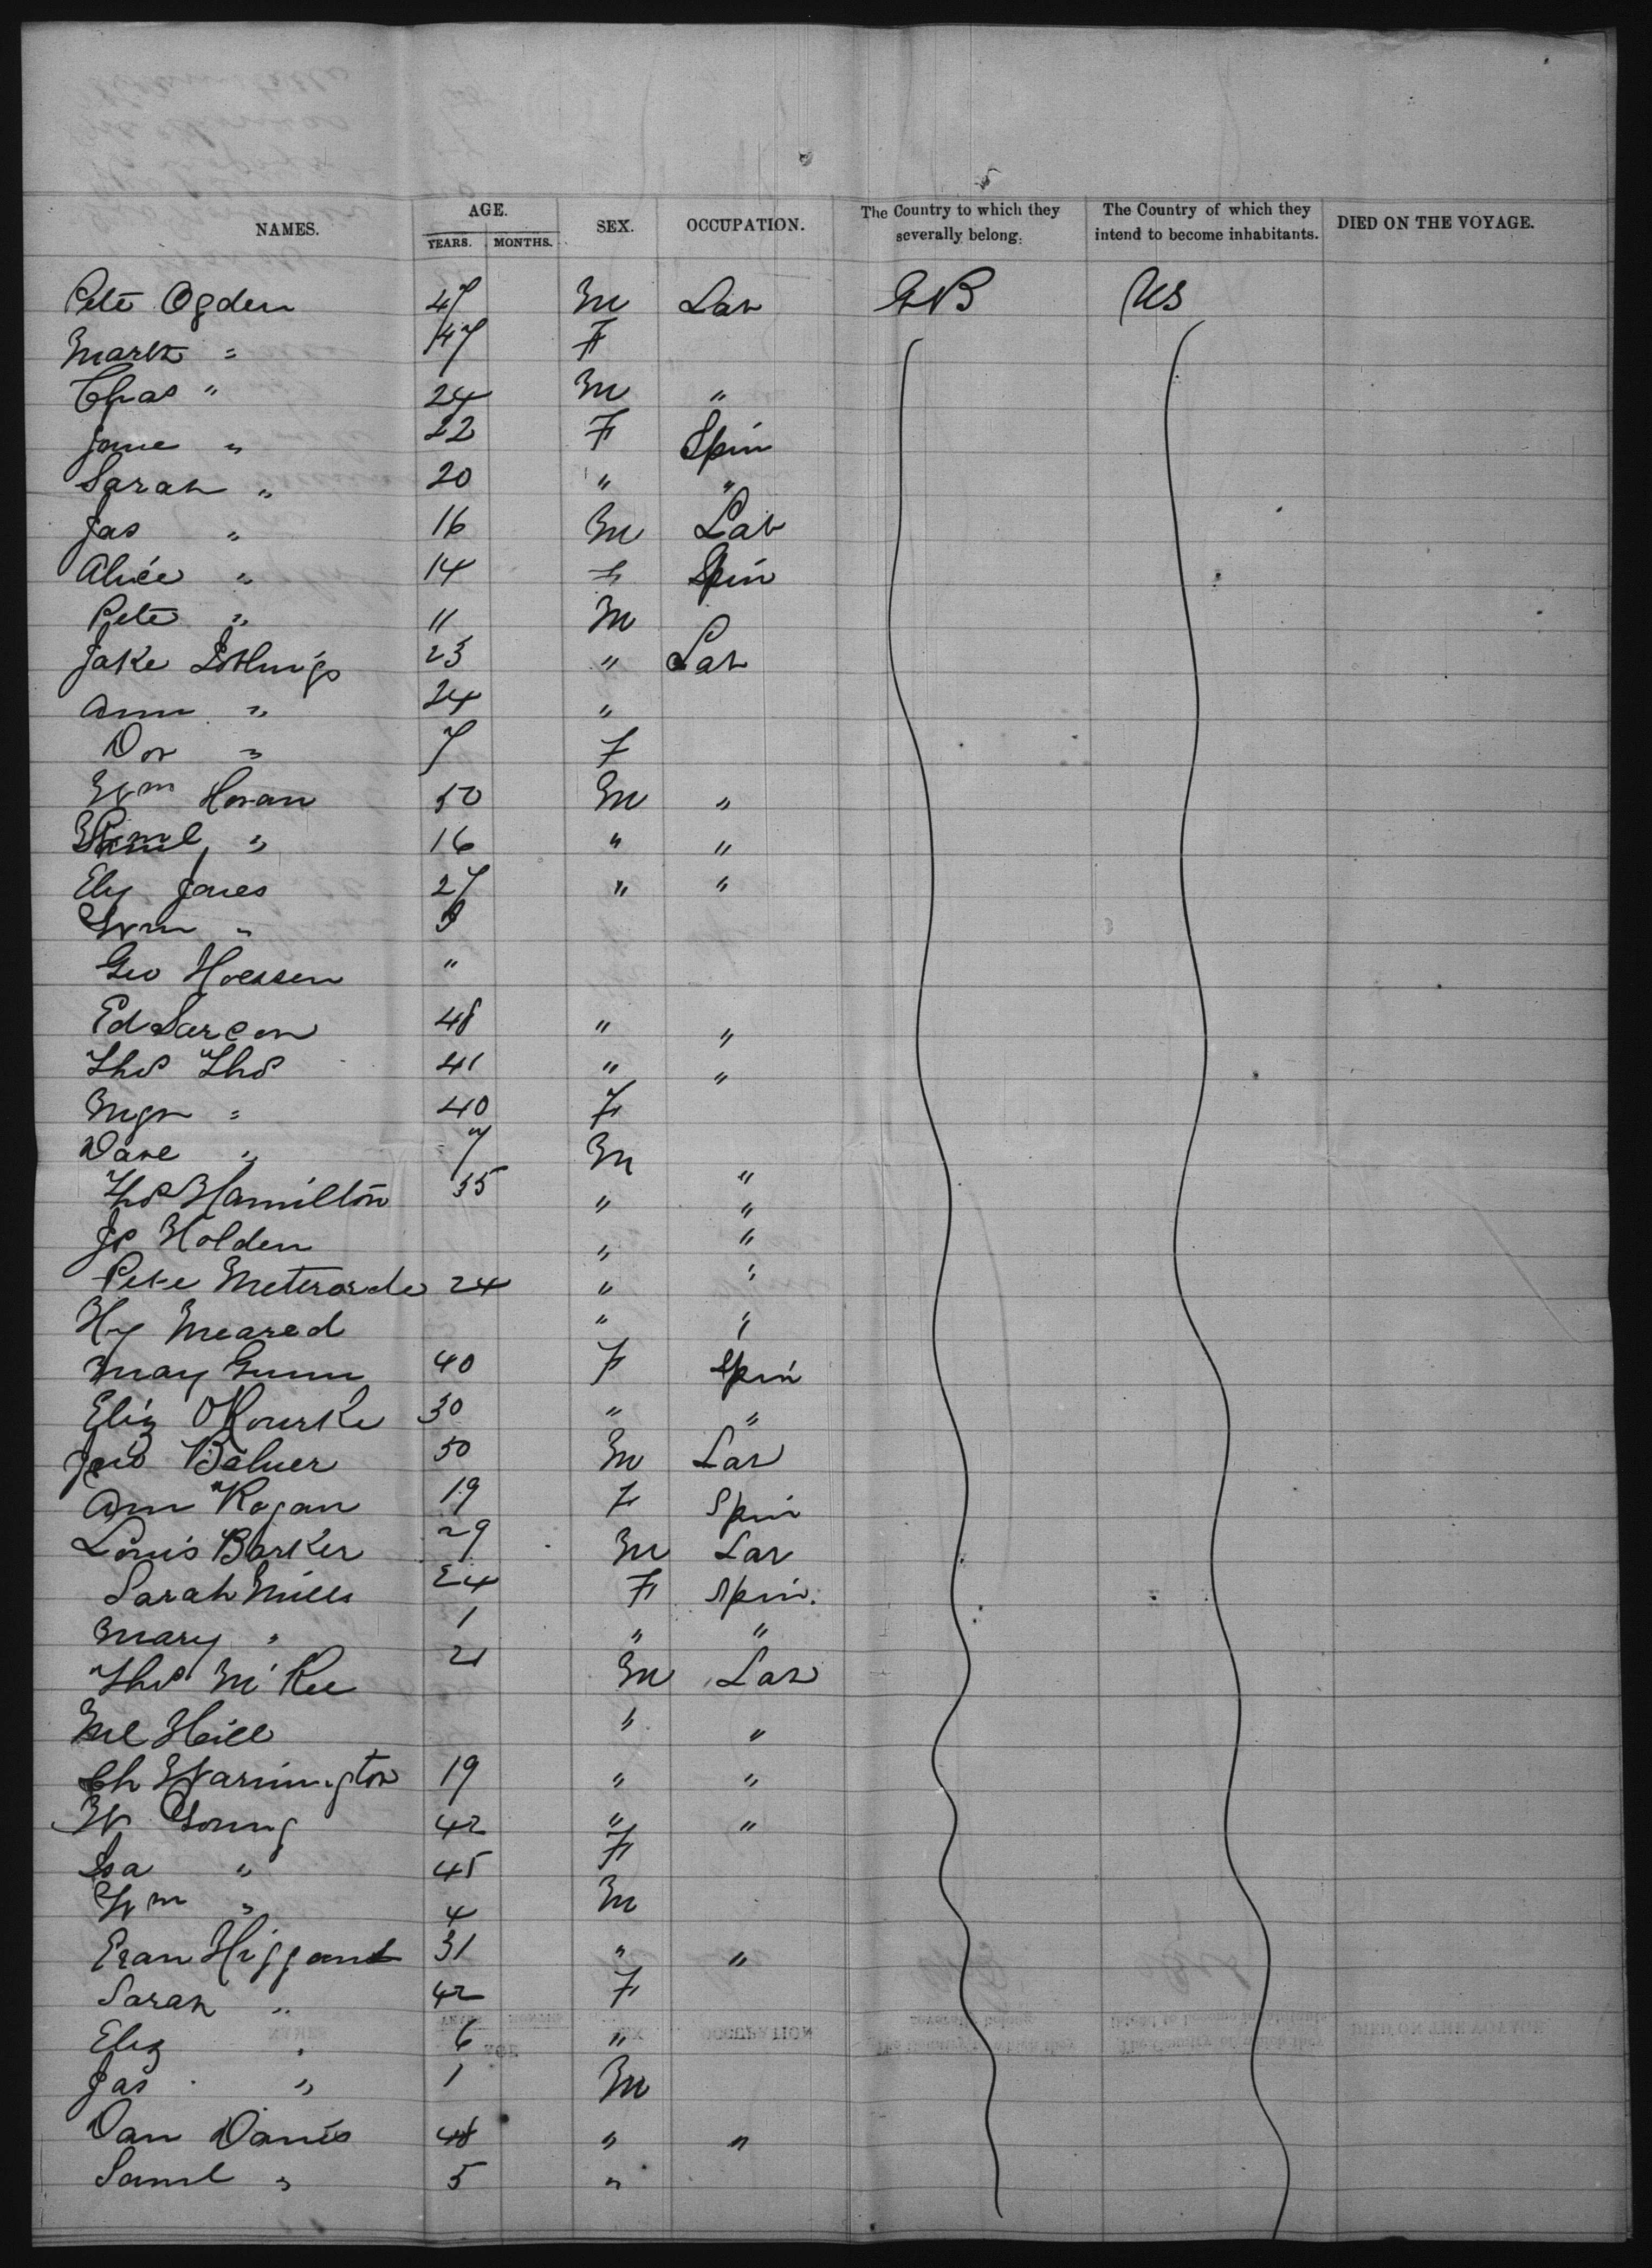 NAMES. AGE. SEX. OCCUPATION. The Country to which they severally belong. The Country of which they intend to become inhabitants. DIED ON THE VOYAGE.
YEARS. MONTHS.
Pete Ogden 47 M Lab GB US
Mark " 47 F
Chas " 24 M "
Jane " 22 F Spin
Sarah " 20 " "
Jas " 16 M Lab
Alice " 14 F Spin
Pete " 11 M
Jake 23 " Lab
Ann " 24 "
" 7 F
Wm Horan 50 M "
" 16 " "
Ely Jones 27 " "
Wm "
Geo "
Ed 48 " "
Thos Thos 41 " "
Mgr " 40 F
Dave " 7 M "
Thos Hamilton 35 " "
Js Holden " "
Pete 24 " "
Hy Meared " "
May Gunn 40 F Spin
Eliz O'Rourke 30 " "
50 M Lab
Ann Kogan 19 F Spin
Louis Barker 29 M Lab
Sarah Mills 24 F Spin.
Mary " 1 " "
Thos McKee 21 M Lab
Ml Hill " "
Ch Warrington 19 " "
W Young 42 " "
Isa " 45 F
Wm " 4 M
Evan 31 " "
Sarah " 42 F
Eliz " 6 "
Jas " 1 M
Dan Davis 48 " "
Saml " 5 "